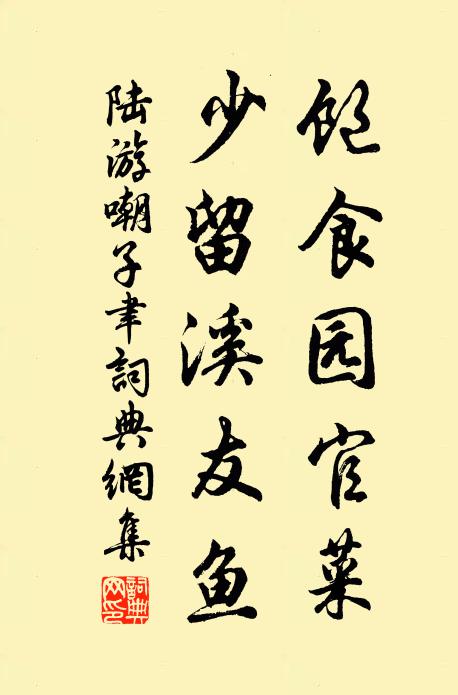 饱食园官菜
少留溪友鱼
陆游嘲子聿詞典網集
詞典网印